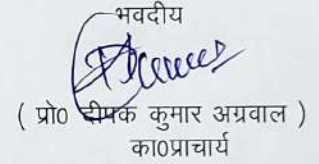 भवदीय
( प्रो0 दीपक कुमार अग्रवाल )
का0प्राचार्य